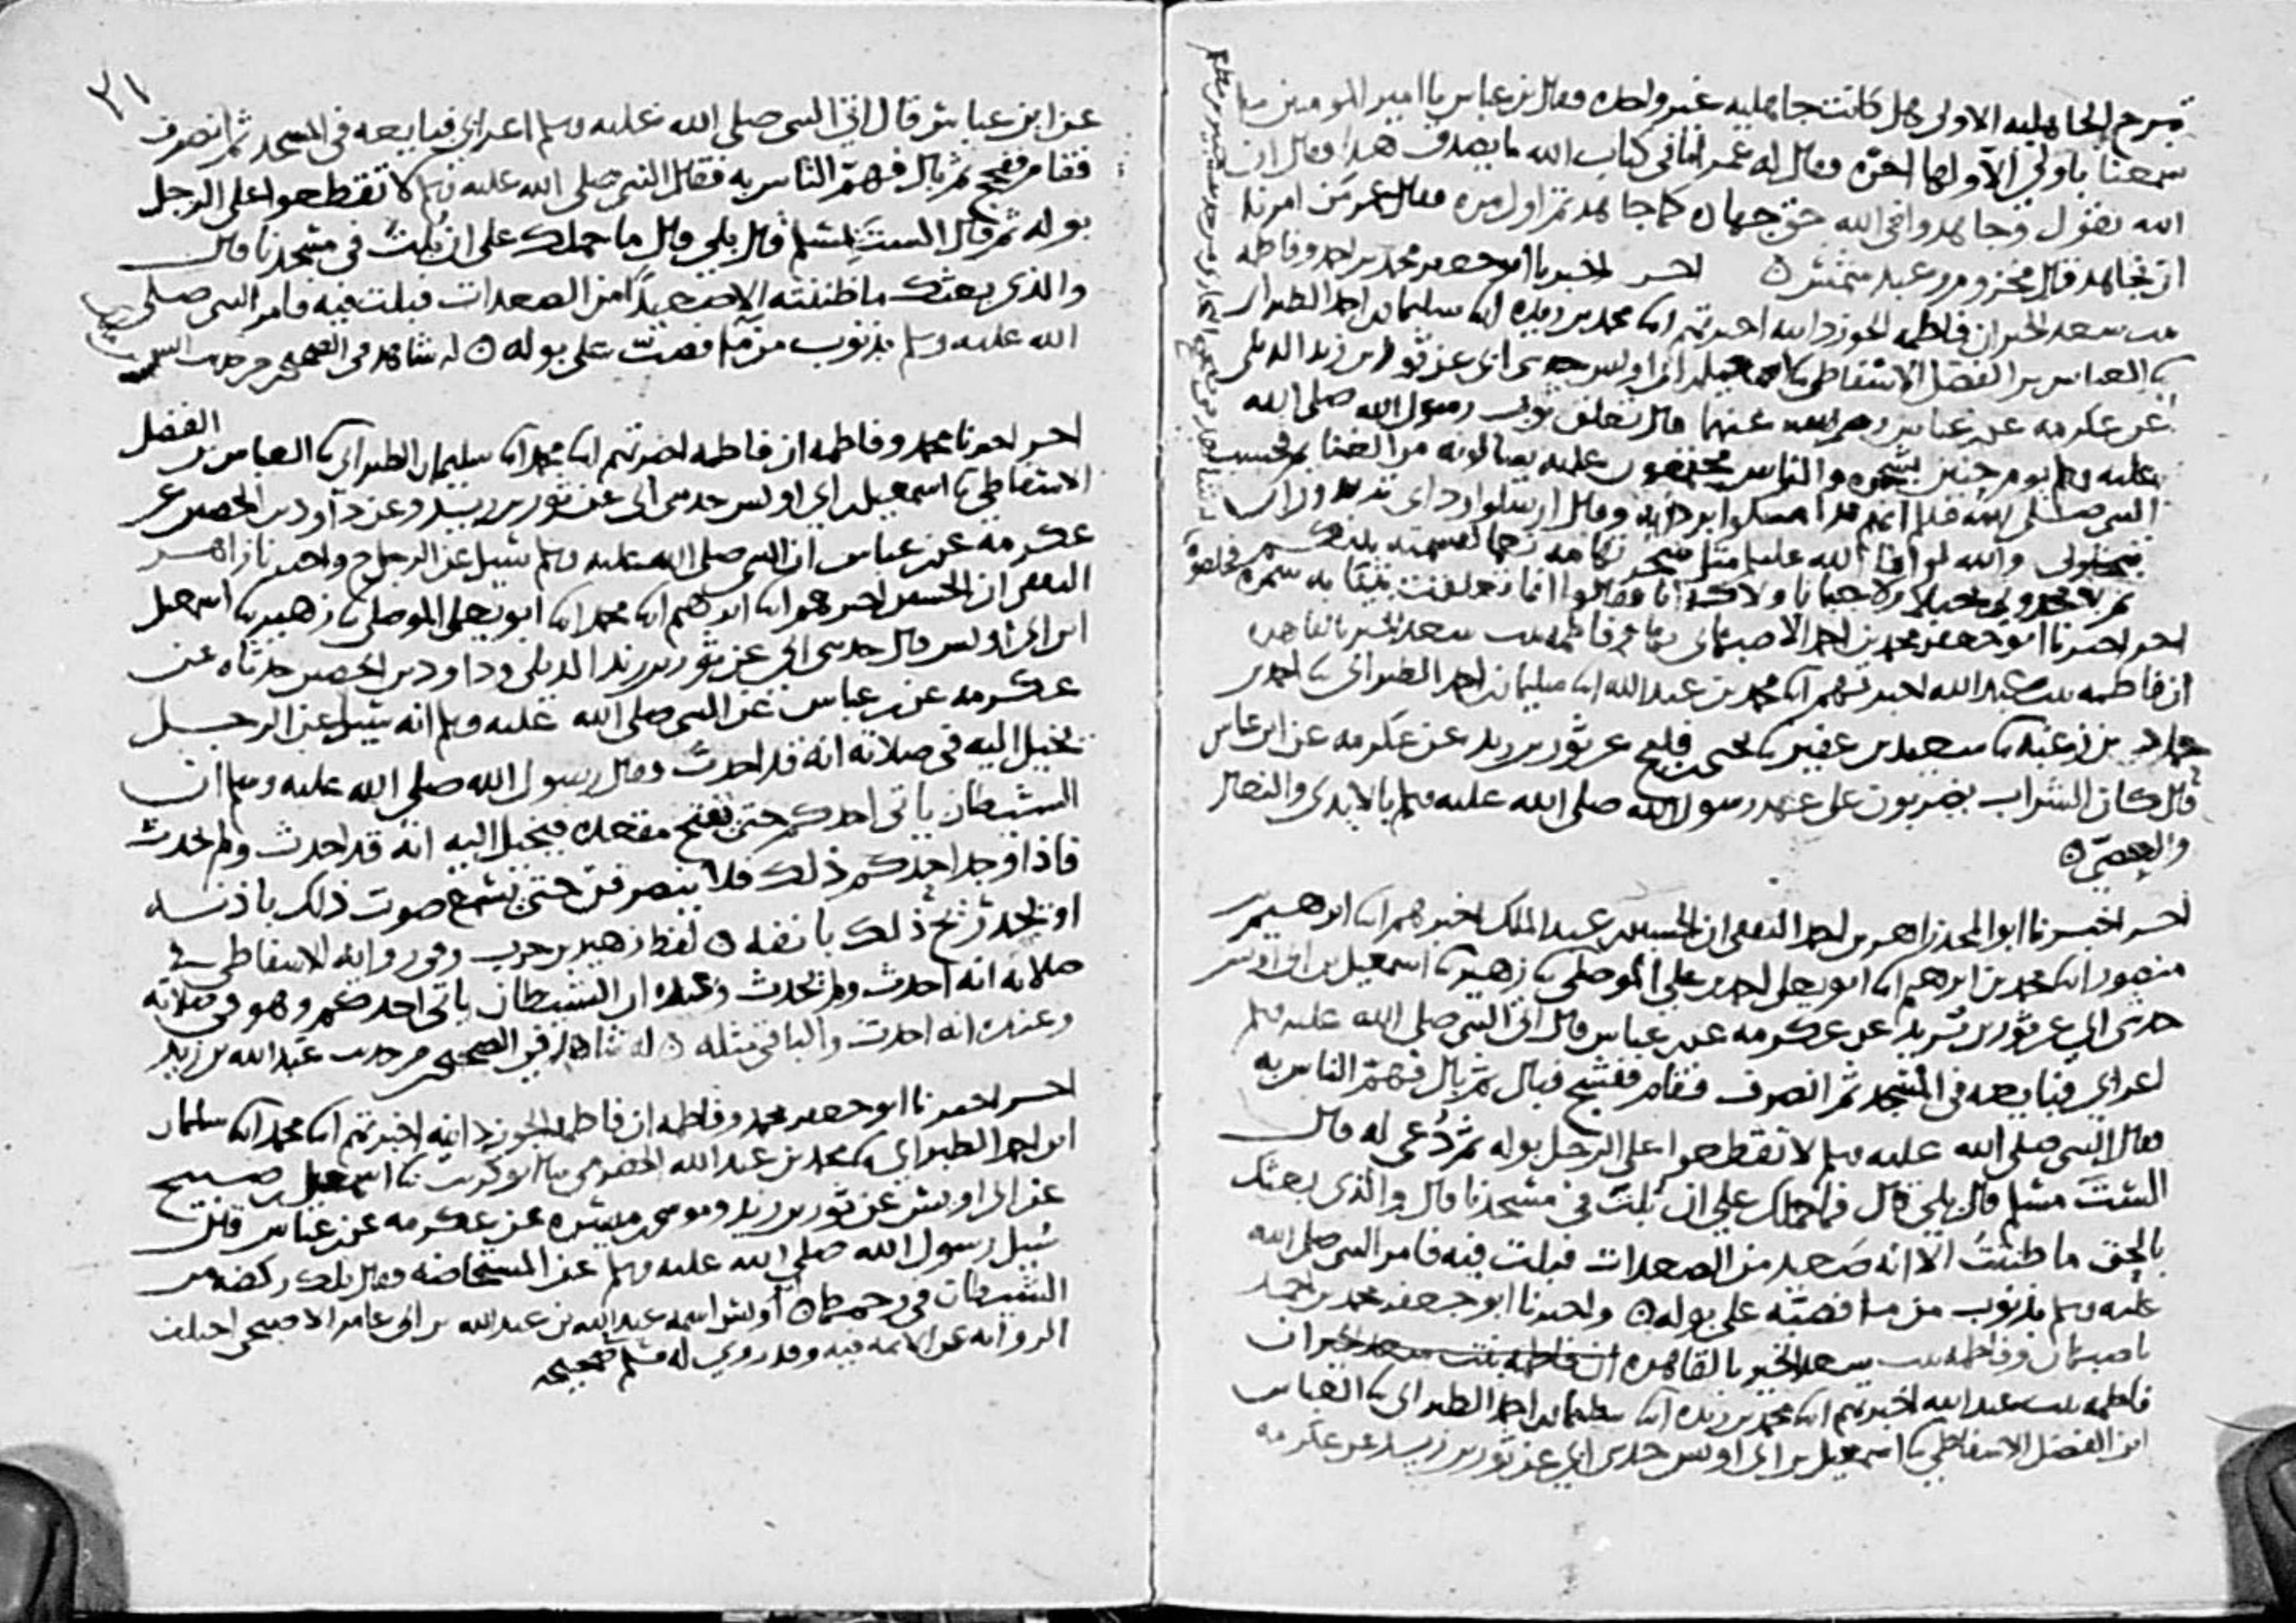 تبرج الجاهليه الاولى هل كانت جاهليه غير واحده فقال بن عباس يا امير المومنين ما
سمعنا باولى الا ولها اخره فقال له عمر اما في كتاب الله ما يصدق هذا فقال ان
الله يقول وجاهدوا في الله حق جهاده كما جاهدتم اول مره فقال عمر من امرنا
ان نجاهد قال مخزوم وعبد شمس ه اخر اخبرنا ابو جعفر محمد بن احمد وفاطمه
بنت سعد الخير ان فاطمه الجوزدانيه اخبرتهم ابنا محمد بن ريذه ابنا سليمان بن احمد الطبراني
نا العباس بن الفضل الاسفاطي نا اسمعيل بن ابي اويس حدثني ابي عن ثور بن زيد الديلي
عن عكرمه عن بن عباس رضي الله عنهما قال تعلق ثوب رسول الله صلى الله
عليه وسلم يوم حنين بشجره والناس مجتمعون عليه يسالونه من الغنائم فحسب
النبي صلى الله عليه وسلم انهم قد امسكوا بردايه وقال ارسلوا ردائي تريدون ان
تبخلوني والله لو افا الله عليا مثل شجر تهامه نعما لقسمته بينكم
ثم لا تجدوني بخيلا ولا جبانا ولا كذابا فقالوا انما تعلقت بثيابه سمره فخلصوه
اخر اخبرنا ابو جعفر محمد بن احمد الاصبهاني بها وفاطمه بنت سعد الخير بالقاهره
ان فاطمه بنت عبد الله اخبرتهم ابنا محمد بن عبد الله ابنا سليمان بن احمد الطبراني نا احمد بن
حماد بن زغبه نا سعيد بن عفير نا يحيى بن فليح عن ثور بن زيد عن عكرمه عن ابن عباس
قال كان الشراب يضربون على عهد رسول الله صلى الله عليه وسلم بالايدي والنعال
والعصي ه
اخر اخبرنا ابو المجد زاهر بن احمد الثقفي ان الحسين بن عبد الملك اخبرهم ابنا ابرهيم بن
منصور ابنا محمد بن ابرهيم ابنا ابو يعلى احمد بن علي الموصلي نا زهير نا اسمعيل بن ابي اويس
حدثني ابي عن ثور بن زيد عن عكرمه عن بن عباس قال اتى النبي صلى الله عليه وسلم
اعرابي فبايعه في المسجد ثم انصرف فقام ففشج فبال ثم بال فهم الناس به
فقال النبي صلى الله عليه وسلم لا تقطعوا على الرجل بوله ثم دعى له قال
الست مسلم قال بلى قال فما حملك على ان بلت في مسجدنا قال والذي بعثك
بالحق ما ظننت الا انه صعيد من الصعدات فبلت فيه فامر النبي صلى الله
عليه وسلم بذنوب من ما فصبه على بوله ه واخبرنا ابو جعفر محمد بن احمد
باصبهان وفاطمه بنت سعد الخير بالقاهره ان فاطمه بنت سعد الخير ان
فاطمه بنت عبد الله اخبرتهم ابنا محمد بن ريذه ابنا سليمان بن احمد الطبراني نا العباس
ابن الفضل الاسفاطي نا اسمعيل بن ابي اويس حدثني ابي عن ثور بن زيد عن عكرمه
٢١
عن ابن عباس قال اتى النبي صلى الله عليه وسلم اعرابي فبايعه في المسجد ثم انصرف
فقام ففحج ثم بال فهم الناس به فقال النبي صلى الله عليه وسلم لا تقطعوا على الرجل
بوله ثم قال الست بمسلم قال بلى قال ما حملك على ان بلت في مسجدنا قال
والذي بعثك ما ظننته الا صعيدا من الصعدات فبلت فيه فامر النبي صلى
الله عليه وسلم بذنوب من ما فصب على بوله ه له شاهد في الصحيح من حديث انس
اخر اخبرنا محمد وفاطمه ان فاطمه اخبرتهم ابنا محمد ابنا سليمان الطبراني نا العباس بن الفضل
الاسفاطي نا اسمعيل بن ابي اويس حدثني ابي عن ثور بن زيد وعن داود بن الحصين عن
عكرمه عن بن عباس ان النبي صلى الله عليه وسلم سيل عن الرجل ح واخبرنا زاهر
الثقفي ان الحسين اخبرهم ابنا ابرهيم ابنا محمد ابنا ابو يعلى الموصلي نا زهير نا اسمعيل
ابن ابي اويس قال حدثني ابي عن ثور بن زيد الديلي وداود بن الحصين حدثاه عن
عكرمه عن بن عباس عن النبي صلى الله عليه وسلم انه سيل عن الرجل
يخيل اليه في صلاته انه قد احدث فقال رسول الله صلى الله عليه وسلم ان
الشيطان ياتي احدكم حتى يفتح مقعده فيخيل اليه انه قد احدث ولم يحدث
فاذا وجد احدكم ذلك فلا ينصرفن حتى يسمع صوت ذلك باذنه
او يجد ريح ذلك بانفه ه لفظ زهير بن حرب وفي روايه الاسفاطي في
صلاته انه احدث ولم يحدث وعنده ان الشيطان ياتي احدكم وهو في صلاته
وعنده انه احدث والباقي مثله ه له شاهد في الصحيح من حديث عبد الله بن زيد
اخر اخبرنا ابو جعفر محمد وفاطمه ان فاطمه الجوزدانيه اخبرتهم ابنا محمد ابنا سليمان
ابن احمد الطبراني نا محمد بن عبد الله الحضرمي نا ابو كريب نا اسمعيل بن صبيح
عن ابي اويس عن ثور بن زيد وموسى بن ميسره عن عكرمه عن بن عباس قال
سيل رسول الله صلى الله عليه وسلم عن المستحاضه فقال تلك ركضه من
الشيطان في رحمها ه ابو اويس اسمه عبد الله بن عبد الله بن ابي عامر الاصبحي اختلف
الروايه عن الايمه فيه وقد روى له مسلم في صحيحه